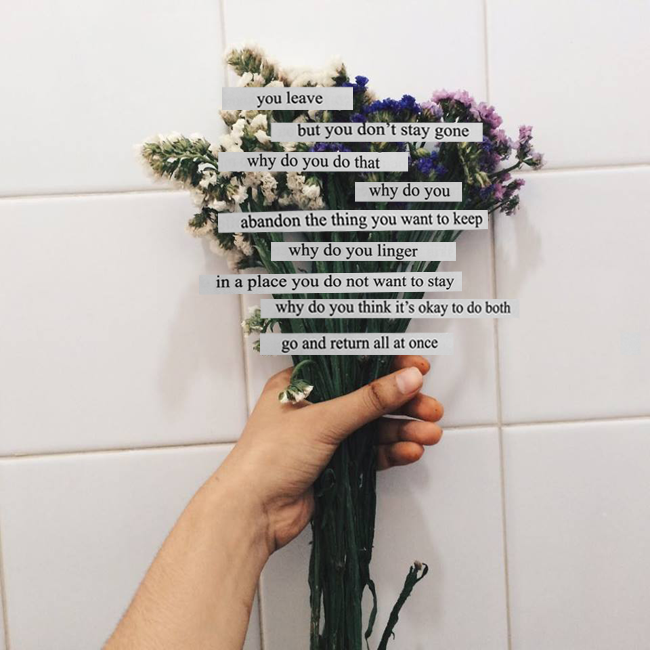 you leave
but you don’t stay gone
why do you do that
why do you
abandon the thing you want to keep
why do you linger
in a place you do not want to stay
why do you think it’s okay to do both
go and return all at once